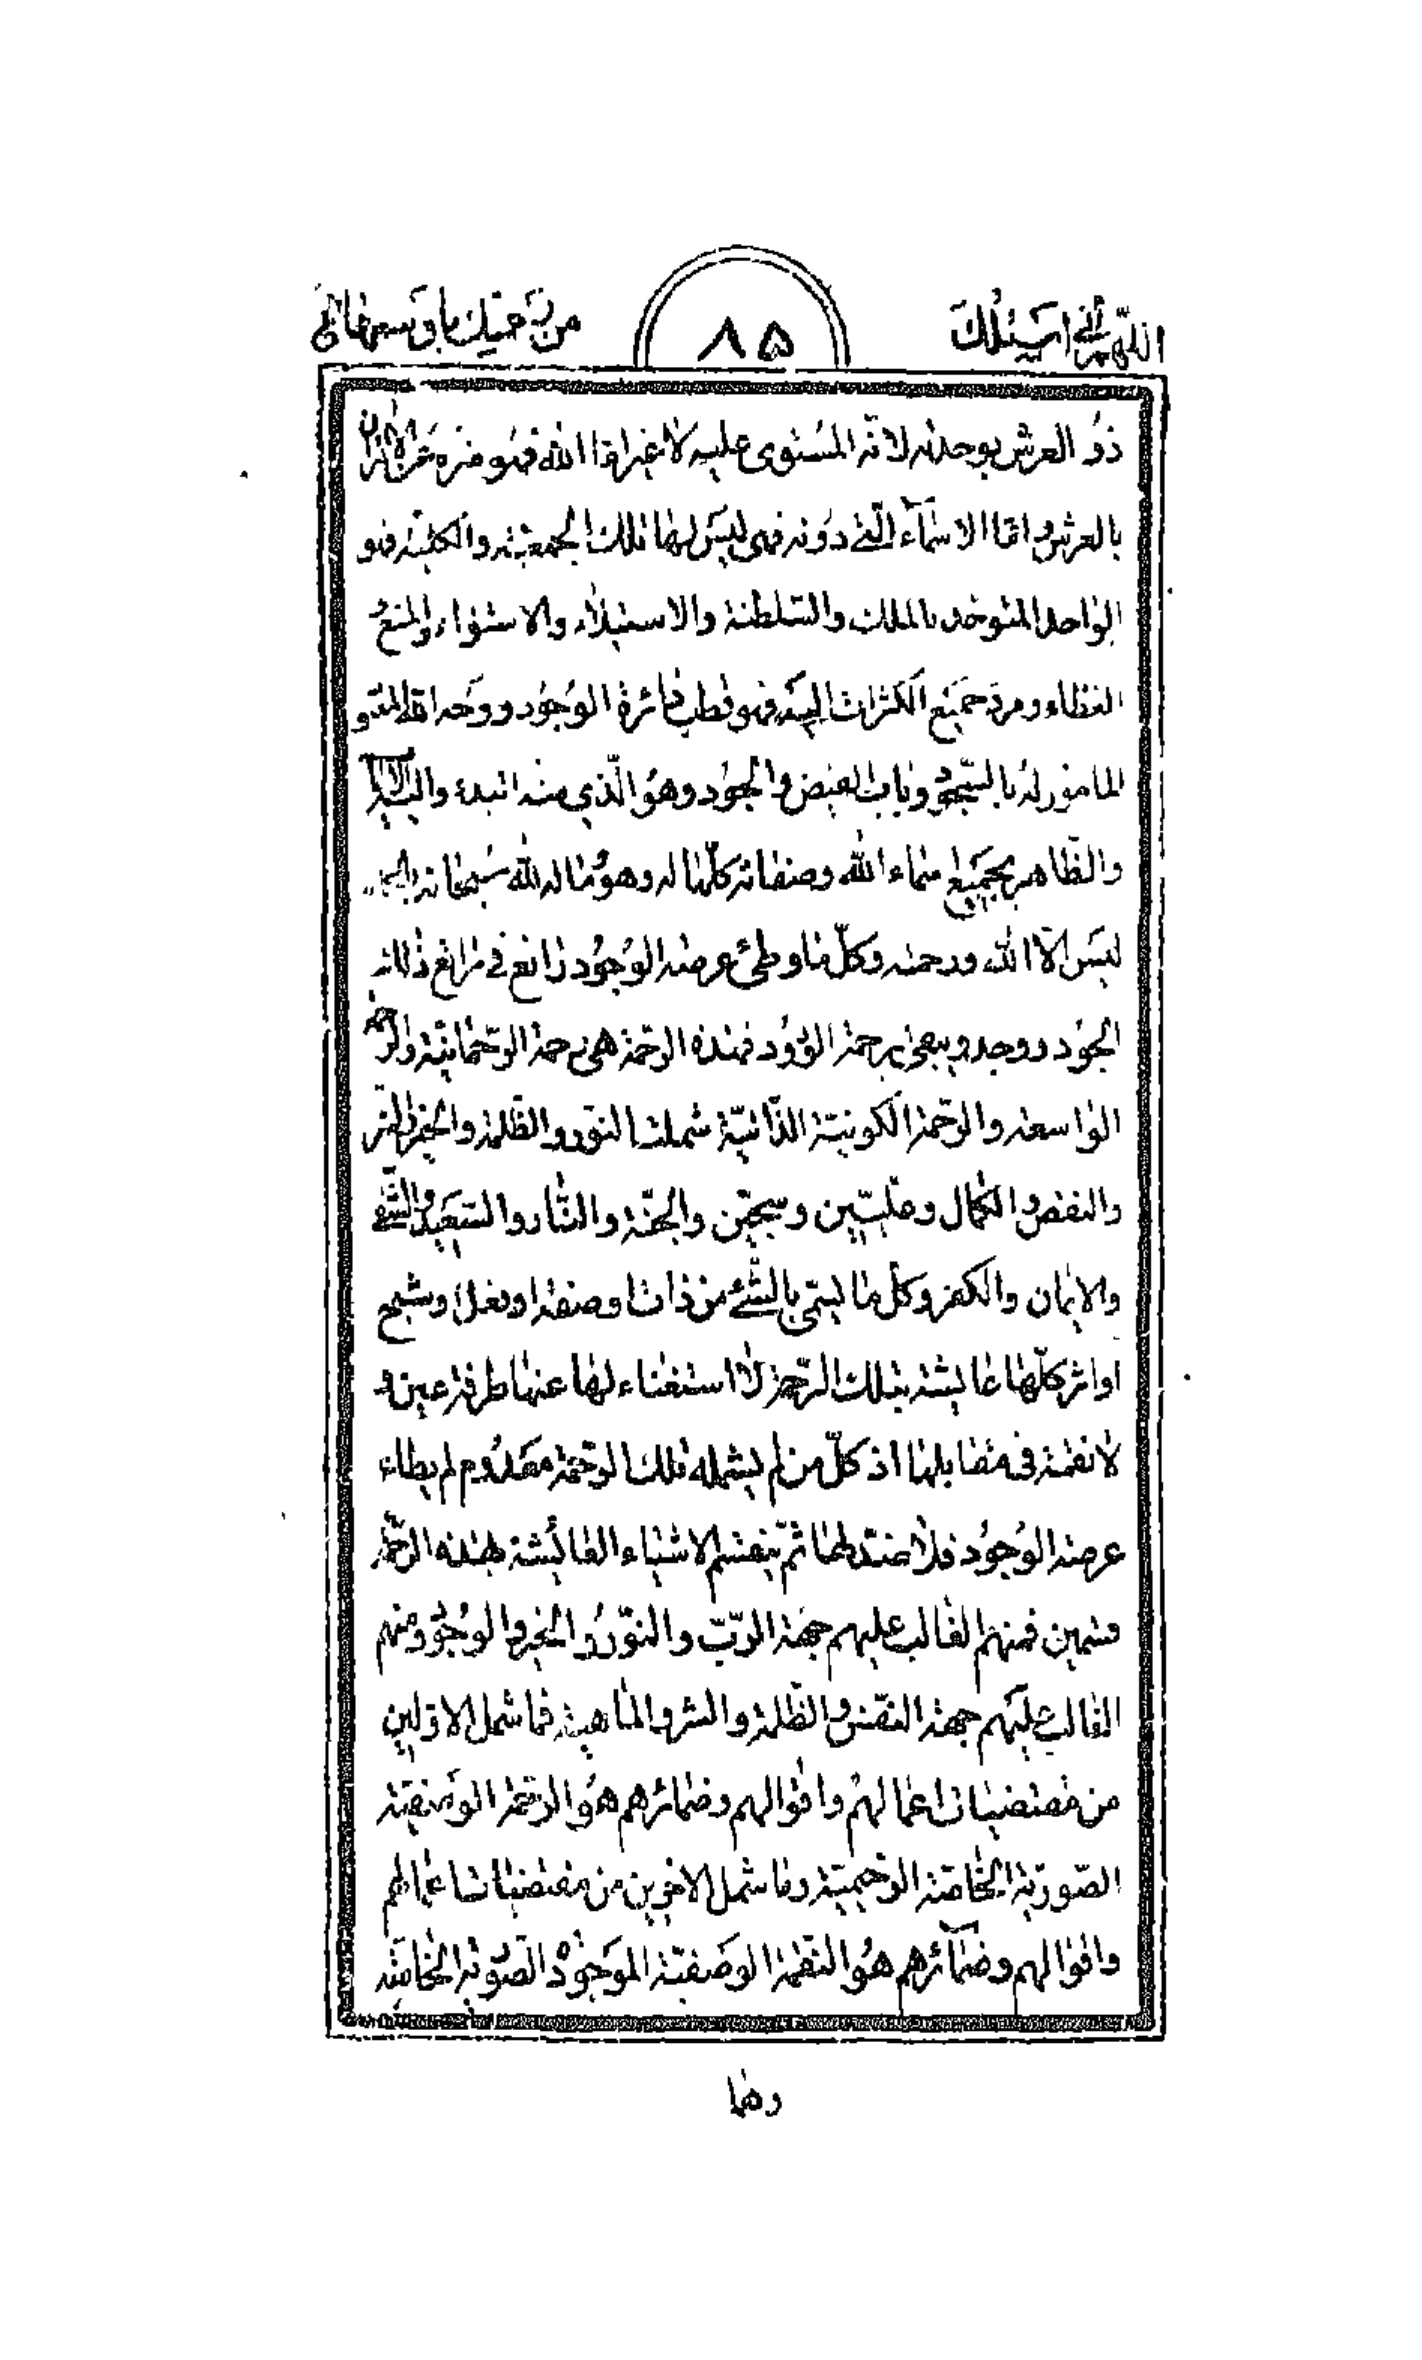 اللّهمّ انّی اسئلک
۸۵
من رحمتک باوسعها
ذو العرش بوحدته لانّه المستوی علیه لا غیر امّا الله فهو منزه عن الاقتران
بالعرش و امّا الاسمآء الّتی دونه فهی لیس لها تلک الجمعیّته و الکلیّته فهو
الواحد المتوحد بالملک و السّلطنة والاستیلاء والاستواء والمنع
العظاء و مردّ جمیع الکثرات الیه فهو قطب دائرة الوجود و وجه الله
المامور له بالسّجود و باب الفیض و الجود و هو الّذی منه البدء و الیه
والظّاهر بجمیع اسماء الله و صفاته کلّها له و هو ما له لله سبحانه
لیس الّا الله و رحمته و کلّ ما وطئ عرصة الوجود زاتع فی مراتع ذلک
الجود و وجد و یبقی برحمة الودود فهذه الرحمة هی رحمة الرّحمانیّة والرحمة
الواسعة و الرّحمة الکونیّة الذّاتیّة شملت النّور و الظّلمة والخیر و الشر
والنقص و الکمال و علیّین و سجّین والجنّة و النّار و السّعید و الشّقی
والایمان والکفر و کلّ ما یسمّی بالشّئ من ذات او صفة او فعل او شبح
او اثر کلّها عایشة بتلک الرّحمة لا استغناء لها عنها طرفة عین و
لا نقمة فی مقابلها اذ کلّ من لم یشمله تلک الرحمة معدوم لم یطاء
عرصة الوجود فلا ضدّ لها ثمّ ینقسم الاشیاء العائشة بهذه الرّحمة
قسمین فمنهم الغالب علیهم جهة الرّبّ و النّور و الخیر و الوجود و منهم
الغالب علیهم جهة النّفس و الظّلمة و الشر و الماهیة فما شمل الاوّلین
من مقتضیات اعمالهم و اقوالهم و ضمائرهم هو الرحمة الوصفیّة
الصّوریّة الخاصّة الرّحیمیّة و ما شمل الاخرین من مقتضیات اعمالهم
و اقوالهم و ضمآئرهم هو النقمة الوصفیّة الموجودة الصّوریّة الخاصّة
و هما